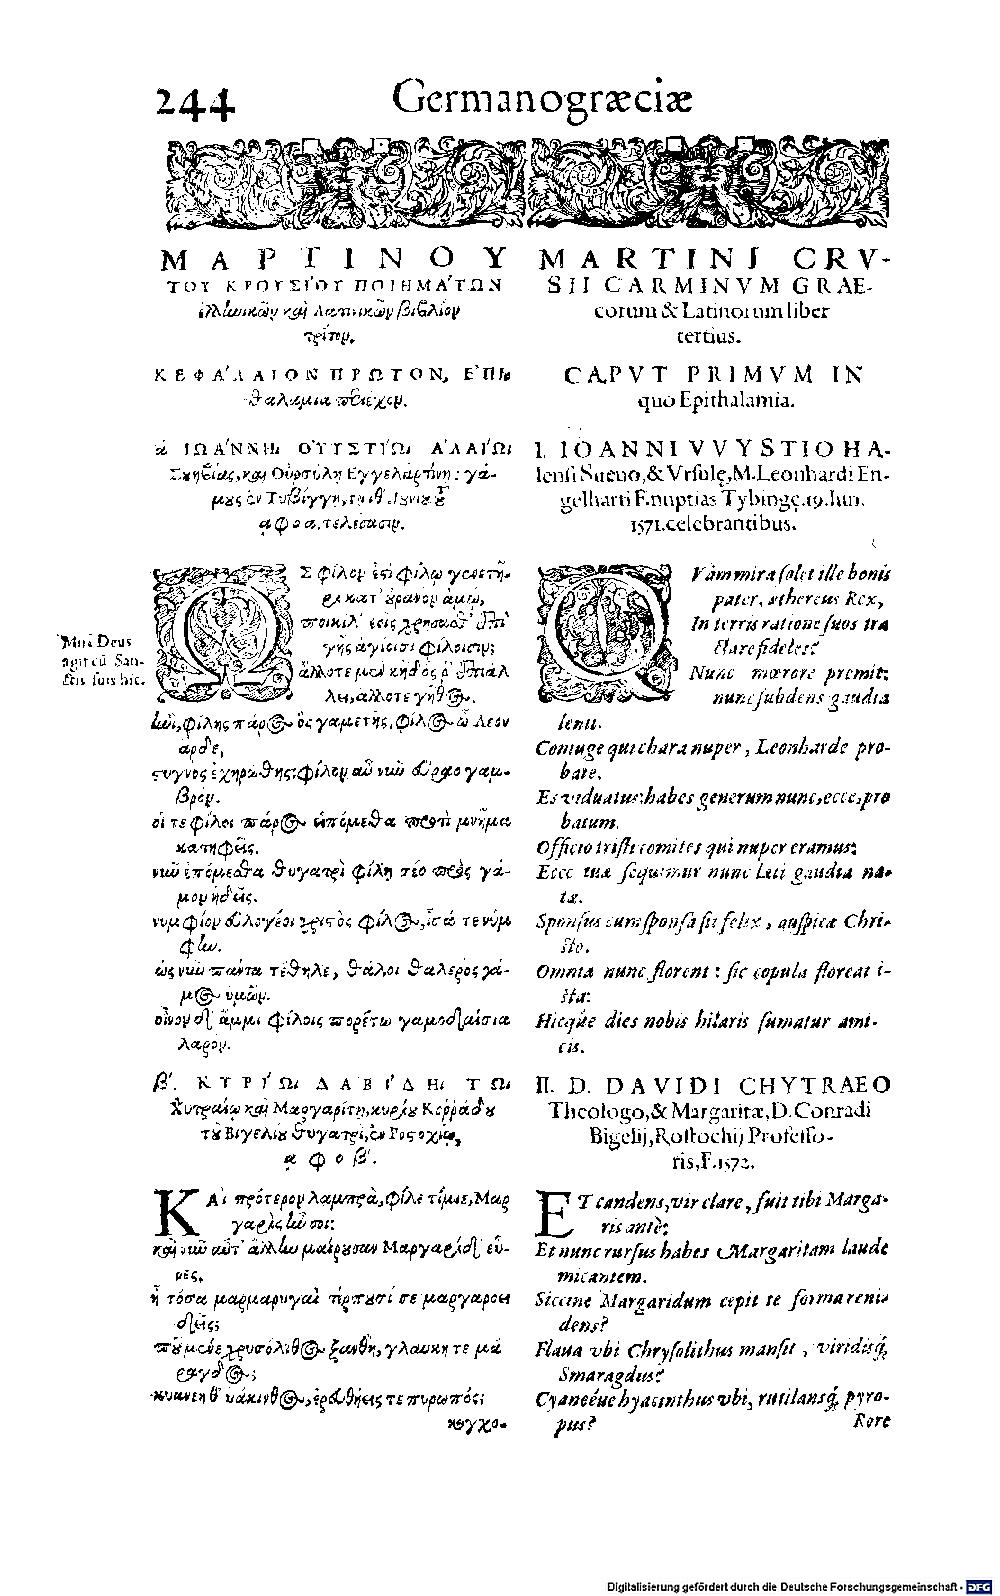 244 Germanograeciæ
ΜΑΡΤΙΝΟΥ
ΤΟΥ ΚΡΟΥΣΙ´ΟΥ ΠΟΙΗΜΑ´ΤΩΝ
ἑλληνικῶν καὶ λατινικῶν βιβλίον
τρίτον.
ΚΕΦΑ´ΛΑΙΟΝ ΠΡΩΤΟΝ, Ε᾿ΠΙ-
θαλάμια περιέχον.
ά ΙΩΑ´ΝΝΗι ΟΥΥΣΤΙ´Ωι Α῾ΛΑΙ´Ωι
καὶ Οὐρσύλῃ Εγγελαρτίνῃ: γά-
μους ἐν Τυβίγγῃ,
α φ ο α, τελέσασιν.
ΩΣ φίλον ἐστὶ φίλῳ γενετῆ-
ρι κατ' οὐρανὸν ἁμῶ,
ποικίλ' ἑοῖς χρῆσθαι ἐπὶ
γῆς ἁγίοισι φίλοισιν;
ἄλλοτε μὲν κῆδός ῥ' ἐπιάλ
λων, ἄλλοτε γῆθος.
Mirè Deus
agit cū San-
ctis suis hîc.
λὴν, φίλης πάρος ὃς γαμετῆς, φίλος ὦ Λεον
αρδε,
στυγνὸς ἐχηρώθης; φίλον αὖ νῦν ὅρμο γαμ-
βρόν.
οἵ τε φίλοι πάρος ἑπόμεσθα περὶ μνῆμα
κατηφεῖς.
νῦν ἑπόμεσθα θυγατρὶ φίλῃ τέο πρὸς γά-
μον ἡδεῖς.
νυμφίον εὐλογέοι χριστὸς φίλος, ἶσά τε νύμ
φην.
ὡς νῦν πάντα τέθηλε, θάλοι θαλερὸς γά-
μος ὑμῶν.
οἶνον δ' ἄμμι φίλοις πορέτω γαμοδαίσια
λαρόν.
β'. ΚΥΡΙ´Ωι ΔΑΒΙ´ΔΗι ΤΩι
Χυτραίῳ καὶ Μαργαρίτῃ, κυρίου Κορράδου
τοῦ Βιγελίου θυγατρὶ, ἐν Ροστοχίῳ,
α φ ο β'.
ΚΑὶ πρότερον λαμπρὰ, φίλε τίμιε, Μαρ
γαρὶς ἦν σοι:
καὶ νῦν αὖτ' ἄλλην μαίρουσαν Μαργαρίδ' εὗ-
ρες.
ἦ τόσα μαρμαρυγαὶ τέρπουσί σε μαργαροει
δεῖς;
ποῦ μένε χρυσόλιθος ξανθὴ, γλαυκή τε μά
ραγδος;
κυανέη θ' ὑάκινθος, ἐρευθήεις τε πυρωπός;
κογχο-
MARTINI CRV-
SII CARMINVM GRAE-
corum & Latinorum liber
tertius.
CAPVT PRIMVM IN
quo Epithalamia.
I. IOANNI VVYSTIO HA-
lensi Sueuo, & Vrsulę, M. Leonhardi En-
gelharti F. nuptias Tybingę. 19. Iun.
1571. celebrantibus.
QVàm mira solet ille bonis
pater, æthereus Rex,
In terris ratione suos tra
ctare fideles?
Nunc mœrore premit:
nunc subdens gaudia
lenit.
Coniuge qui chara nuper, Leonharde pro-
bate,
Es viduatus: habes generum nunc, ecce, pro
batum.
Officio tristi comites qui nuper eramus:
Ecce tuæ sequimur nunc læti gaudia na-
tæ.
Sponsus cum sponsa sit felix, auspice Chri-
sto.
Omnia nunc florent: sic copula floreat i-
sta:
Hicq́ue dies nobis hilaris sumatur ami-
cis.
II. D. DAVIDI CHYTRAEO
Theologo, & Margaritæ, D. Conradi
Bigelij, Rostochij Professo-
ris, F. 1572.
ET candens, vir clare, fuit tibi Marga-
ris antè:
Et nunc rursus habes Margaritam laude
micantem.
Siccine Margaridum cepit te forma reni-
dens?
Flaua vbi Chrysolithus mansit, viridisq́,
Smaragdus?
Cyaneéue hyacinthus vbi, rutilansq́, pyro-
pus?
Rore
Digitalisierung gefördert durch die Deutsche Forschungsgemeinschaft - DFG